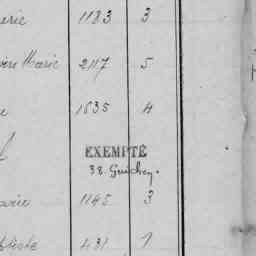 erie 1183 3
Marie 2117 5
e 1635 4
EXEMPTÉ
38. Guichey.
arie 1145 3
ptiste 431 1